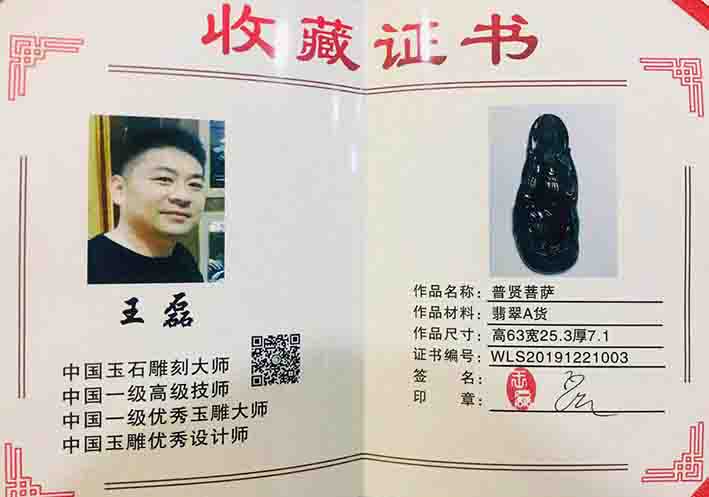 收藏证书
王磊
中国玉石雕刻大师
中国一级高级技师
中国一级优秀玉雕大师
中国玉雕优秀设计师
作品名称：普贤菩萨
作品材料：翡翠A货
作品尺寸：高63宽25.3厚7.1
证书编号：WLS20191221003
签 名：
印 章：